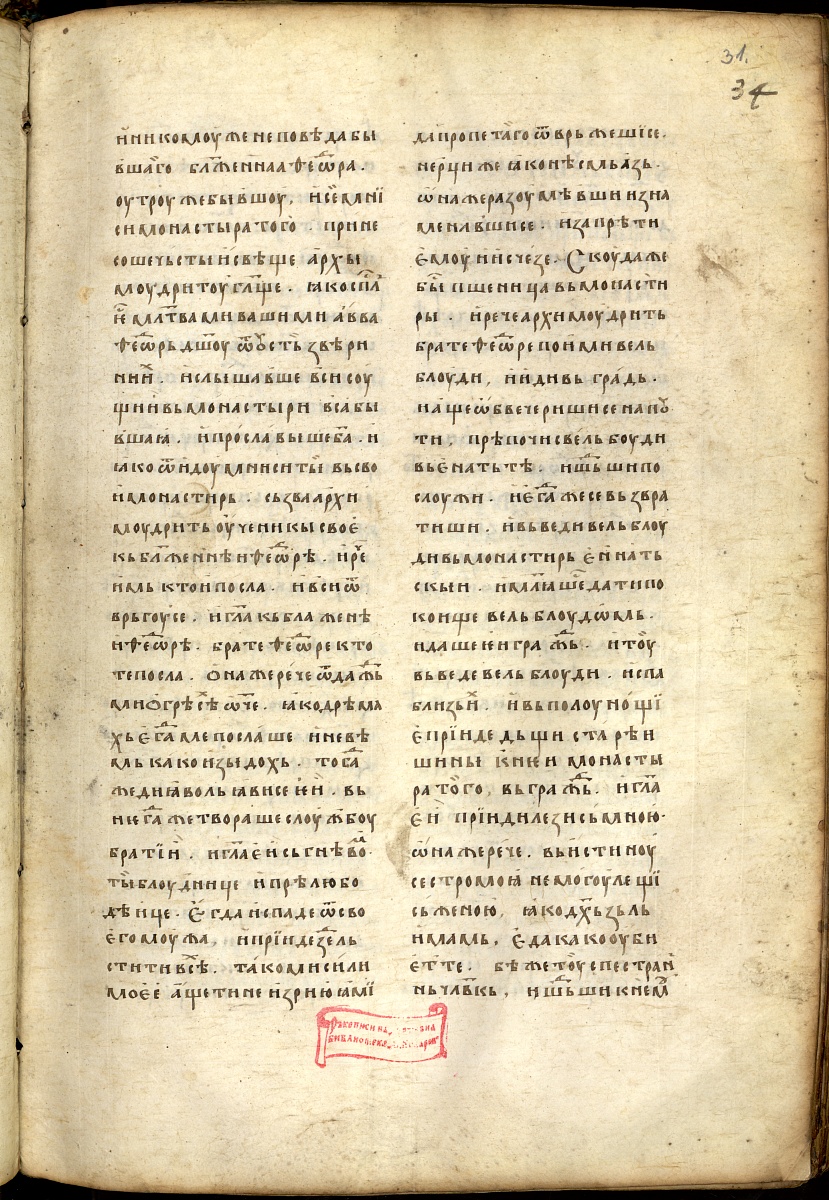 31.
34
и҆ никомоу же не повѣда бы
вшаго блаженнаа ѳеѡ҆ра .
оутроу же бывшоу , и҆ се мнї
си монастыра того . прине
соше чьстыи҆ свѣще а҆рхы
моудритоу гл҃ще . ꙗко сп҃л
не мл҃твами вашими а҆вва
ѳеѡ҆рь дш҃оу ѿ оусть звѣри
нии҆ . и҆ слышавше вси соу
щиі вь монастыри вса бы
вшаꙗ . и҆ прославыше ба҃ . и
ꙗко ѿидоу мниси ты вь сво
и монастирь . сьзва а҆рхи
моудрить оу҆ченикы своѥ
кь бл҃женнѣи ѳеѡ҆рѣ . и҆ ре҃
имь кто и посла . и҆ вси ѿ
врьгоу се . и гл҃а кь блаженѣ
и ѳеѡ҆рѣ . брате ѳеѡ҆ре кто
те посла . ѻна же рече ѿдаждь
ми ѻгрѣсѣ ѡ҆че . ꙗко дрѣмꙗ
хь ѥгда ме посла ше и҆ не вѣ
мь како изыдох . тогда
же диꙗволь ꙗви се ѥи . вь
нѥгда же твораше слоужбоу
братїи . и҆ гл҃а ѥи сь гнѣвом
ты блоуднице и҆ прѣлюбо
дѣице . Ѥгда испаде ѿ сво
ѥго моужа , и҆ прїиде зѣль
стити всѣ . тако ми сили
моѥѥ а҆ще ти не изрию ꙗмї
да пропетаго ѿврьжеши се .
не рци же ꙗко нѣсмь азь .
ѡ҆на же разоумѣвши и зна
мена вши се . и запрѣти
ѥмоу и исчезе . Скоуда же
бы пшеница вь монасти
ры . и҆ рече архимоудрить
брате ѳеѡ҆ре поими вель
блоуди , и҆ иди вь градь .
и аще ѡ҆бвечериши се на поу
ти , прѣпочи сь вельбоуди
вь ѥнатьтѣ . и шьдьши по
слоужи . и ѥгда же се вьзвра
тиши . и вьведи вельблоу
ди вь монастирь ѥинать
скыи . и мл҃ꙗше дати по
коище вельблоудѡмь .
идаше и и градь . и тоу
вьведе вельблоуди . и спа
близь и . и вь полоунощї
ѥ прїиде дьщи старѣи
шины кнеи монасты
ра того , вь градь . и гл҃а
ѥи прїиди лези сь мною .
ѡ҆на же рече . вьистиноу
сестро моꙗ не могоу лещї
сь женою , ꙗко дх҃ь зьль
имамь , ѥда како оуби
ѥть те . бѣ же тоу спе стран
нь чл҃вкь , и шьдьши к нем